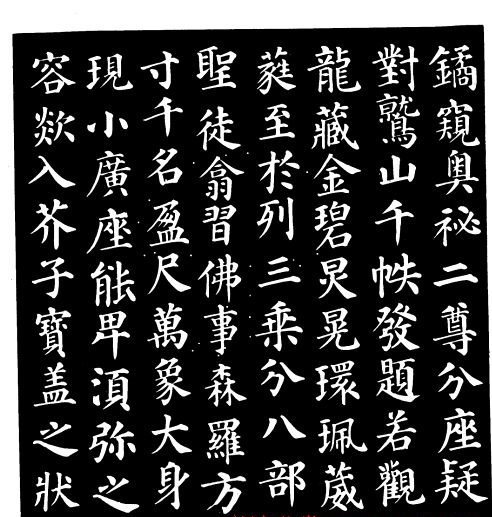 鐍窺奧祕二尊分座疑
對鷲山千帙發題若觀
龍藏金碧炅晃環珮葳
蕤至於列三乘分八部
聖徒翕習佛事森羅方
寸千名盈尺萬象大身
現小廣座能卑湏弥之
容欻入芥子寶盖之狀